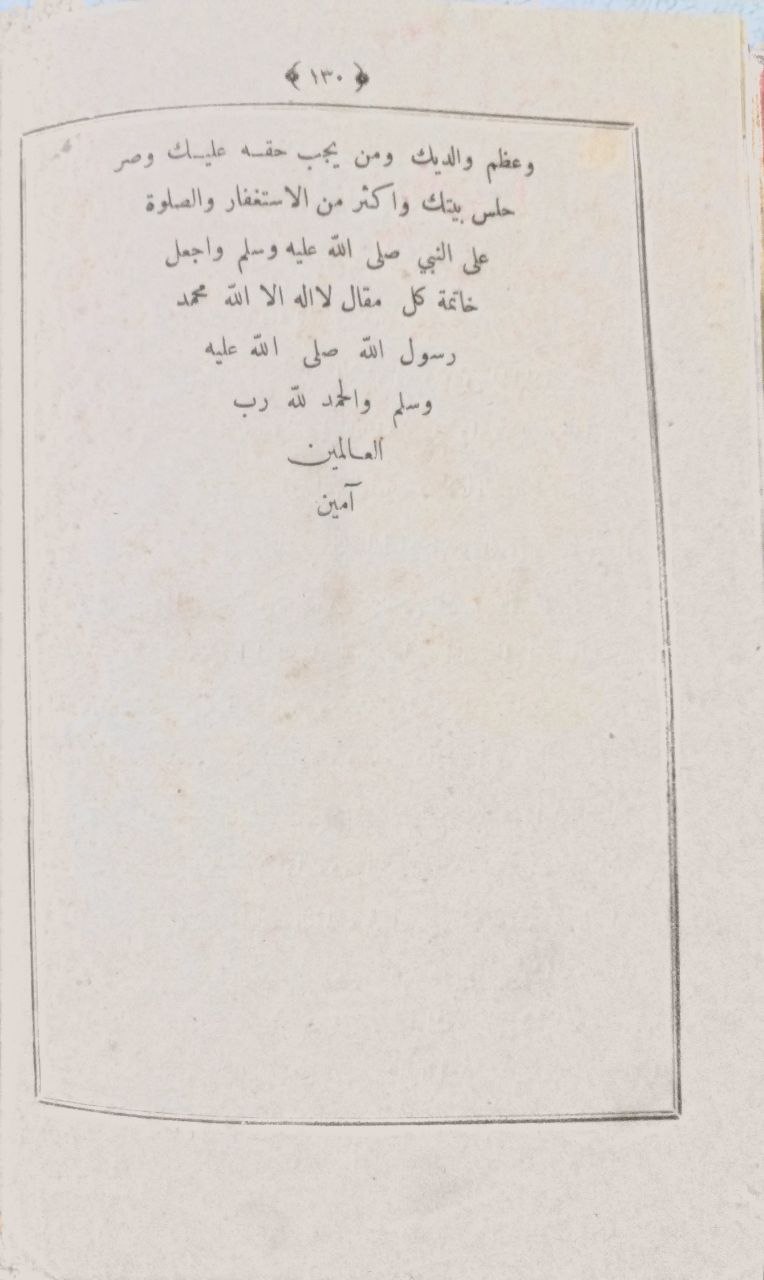 ﴿ ١٣٠ ﴾
وعظم والديك ومن يجب حقه عليك وصر
حلس بيتك واكثر من الاستغفار والصلوة
على النبي صلى الله عليه وسلم واجعل
خاتمة كل مقال لااله الا الله محمد
رسول الله صلى الله عليه
وسلم والحمد لله رب
العالمين
آمين